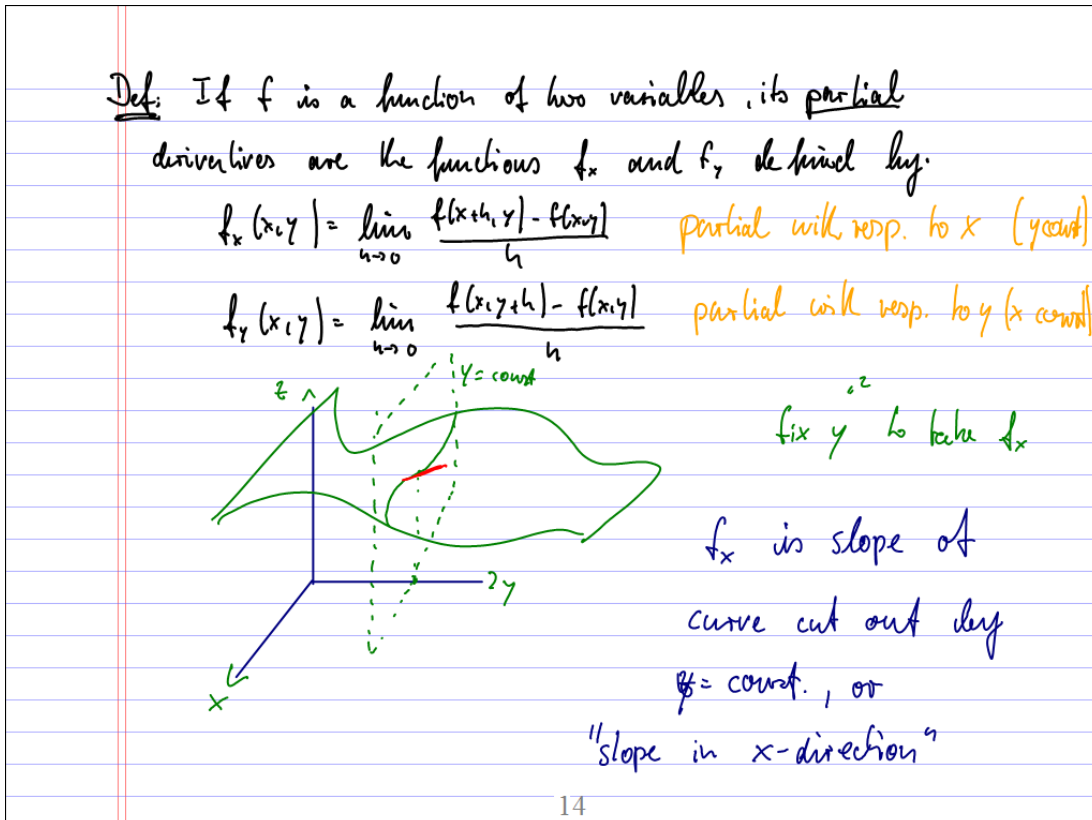 Def: If f is a function of two variables, its partial
derivatives are the functions f_x and f_y defined by.
f_x (x,y) = lim_{h→0} \frac{f(x+h,y) - f(x,y)}{h} partial with resp. to x (y const)
f_y (x,y) = lim_{h→0} \frac{f(x,y+h) - f(x,y)}{h} partial with resp. to y (x const)
z
y = const
fix y to take f_x
f_x is slope of
y
curve cut out by
x
y = const., or
"slope in x-direction"
14